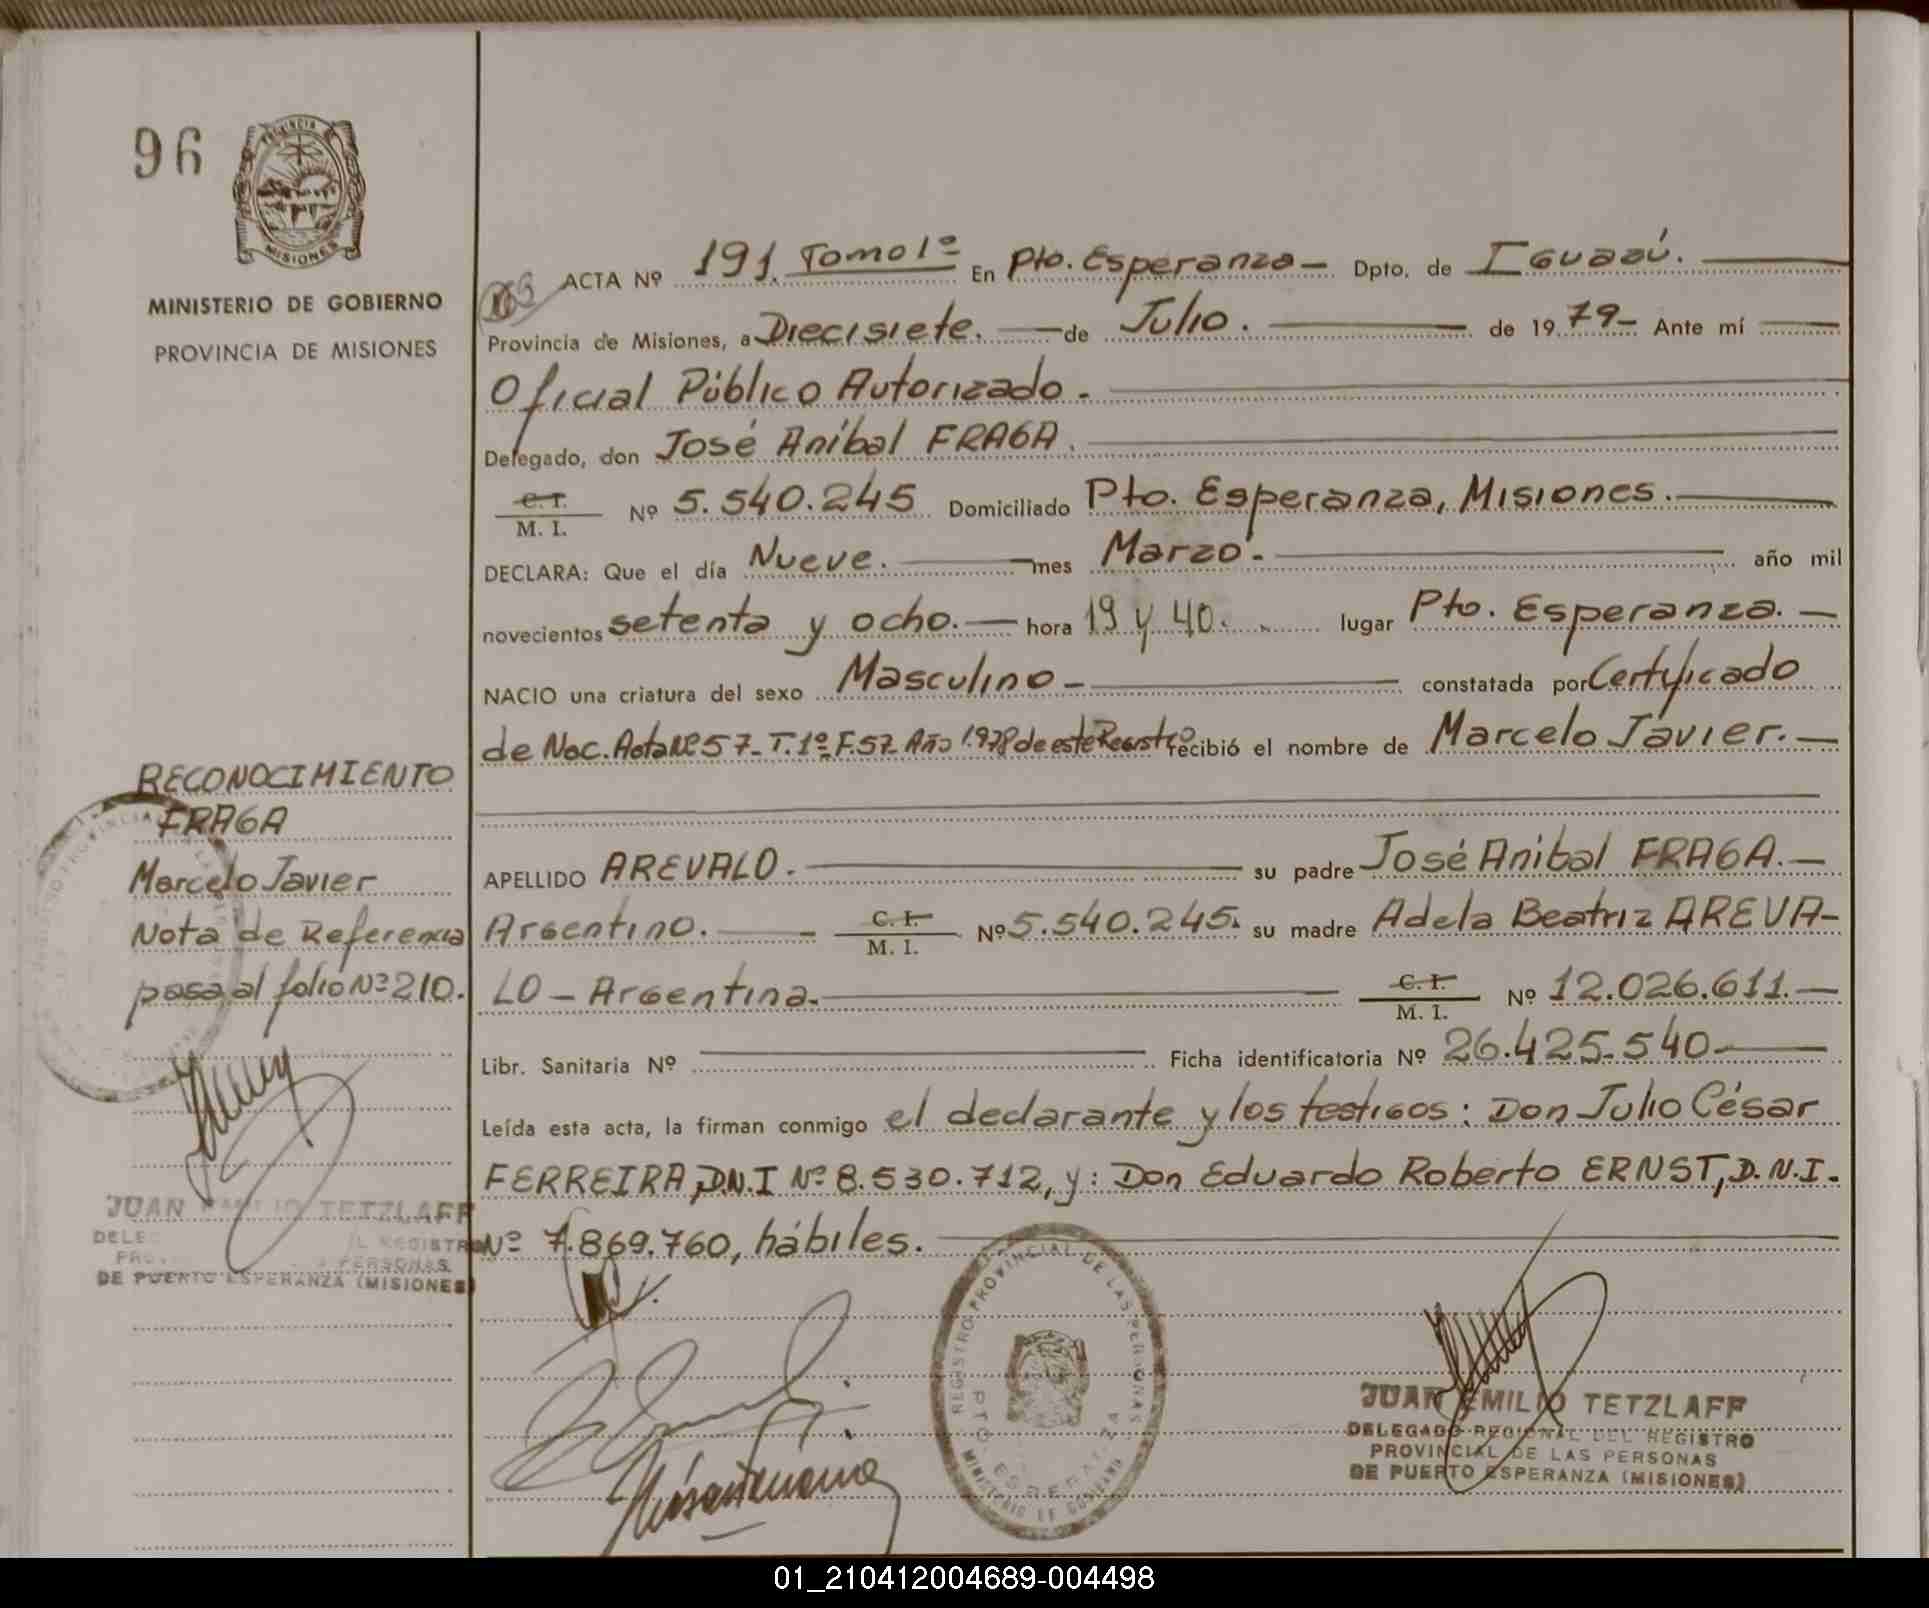 96
PROVINCIA
MISIONES
MINISTERIO DE GOBIERNO
PROVINCIA DE MISIONES
RECONOCIMIENTO
FRAGA
Marcelo Javier
Nota de Referencia
pasa al folio Nº 210.
JUAN EMILIO TETZLAFF
DE PUERTO ESPERANZA (MISIONES)
ACTA Nº 191. Tomo 1º En Pto. Esperanza- Dpto. de Iguazú.
Provincia de Misiones, a Diecisiete. de Julio. de 1979- Ante mí
Oficial Público Autorizado.
Delegado, don José Aníbal FRAGA.
C. I.
M. I. Nº 5.540.245 Domiciliado Pto. Esperanza, Misiones.
DECLARA: Que el día Nueve. mes Marzo.- año mil
novecientos setenta y ocho.- hora 19 y 40. lugar Pto. Esperanza.-
NACIO una criatura del sexo Masculino- constatada por Certificado
de Nac. Acta Nº 57- T. 1º- F. 57. Año 1.978 de este Registro recibió el nombre de Marcelo Javier.-
APELLIDO AREVALO.- su padre José Anibal FRAGA.-
Argentino.- C. I. M. I. Nº 5.540.245. su madre Adela Beatriz AREVA-
LO - Argentina.- C. I. M. I. Nº 12.026.611.-
Libr. Sanitaria Nº Ficha identificatoria Nº 26.425.540-
Leída esta acta, la firman conmigo el declarante y los testigos: Don Julio César
FERREIRA, D.N.I Nº 8.530.712, y: Don Eduardo Roberto ERNST, D.N.I.
Nº 7.869.760, hábiles.
REGISTRO PROVINCIAL DE LAS PERSONAS
PTO ESPERANZA
MINISTERIO DE GOBIERNO
JUAN EMILIO TETZLAFF
DELEGADO REGIONAL DEL REGISTRO
PROVINCIAL DE LAS PERSONAS
DE PUERTO ESPERANZA (MISIONES)
01_210412004689-004498